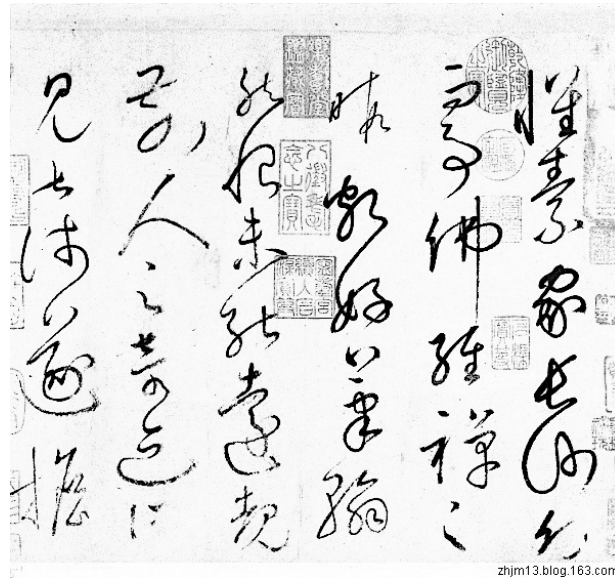 懷素家長沙幼
而事佛經禪之
暇頗好筆翰
然恨未能遠覩
前人之奇迹所
見甚淺遂擔
八徵耄念之寶
zhjm13.blog.163.com